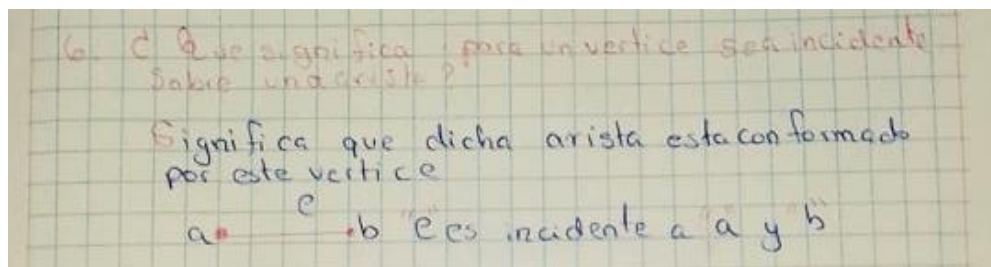 6. ¿ Que significa para un vertice sea incidente
sobre una arista?
Significa que dicha arista esta conformado
por este vertice
e
a .b e es incidente a "a" y "b"